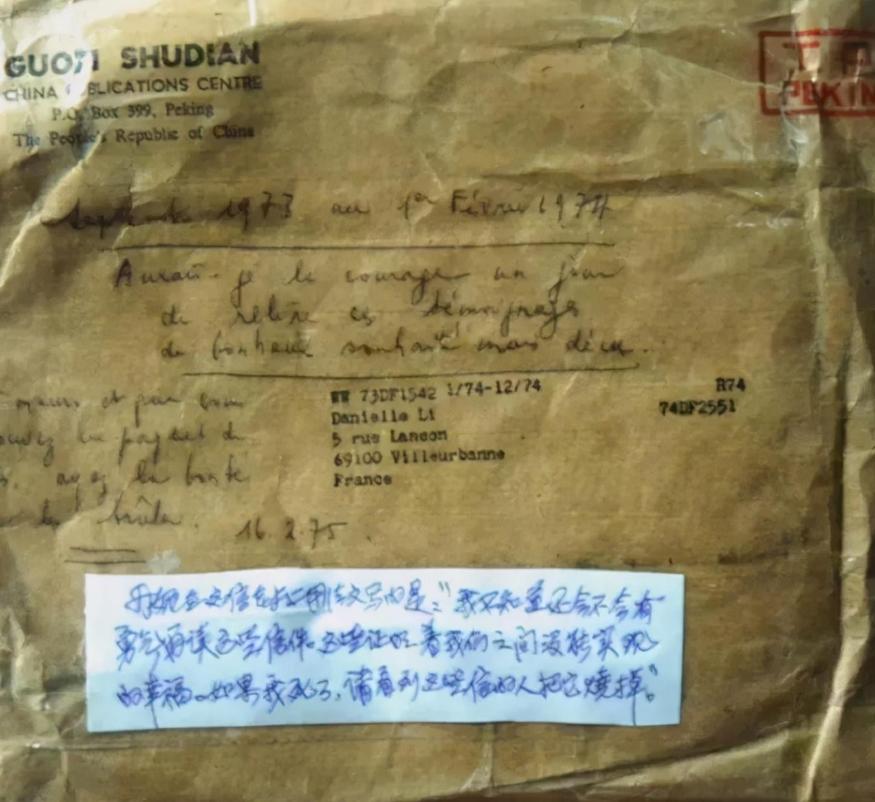 GUOZI SHUDIAN
CHINA PUBLICATIONS CENTRE
P.O. Box 399, Peking
The People's Republic of China
PEKIN
Septembre 1973 au 1er Février 1974
Aurai-je le courage un jour
de relire ces témoignages
de bonheur souhaité mais déçu.
WW 73DF1542 1/74-12/74
R74
74DF2551
Danielle Li
5 rue Lancon
69100 Villeurbanne
France
et par
paquet de
ayez la bonté
les brûler.
16.2.75.
在信封上用法文写的是："我不知道还会不会有
勇气再读这些信件。这些证明着我们之间没能实现
的幸福。如果我死了，请看到这些信的人把它烧掉。"